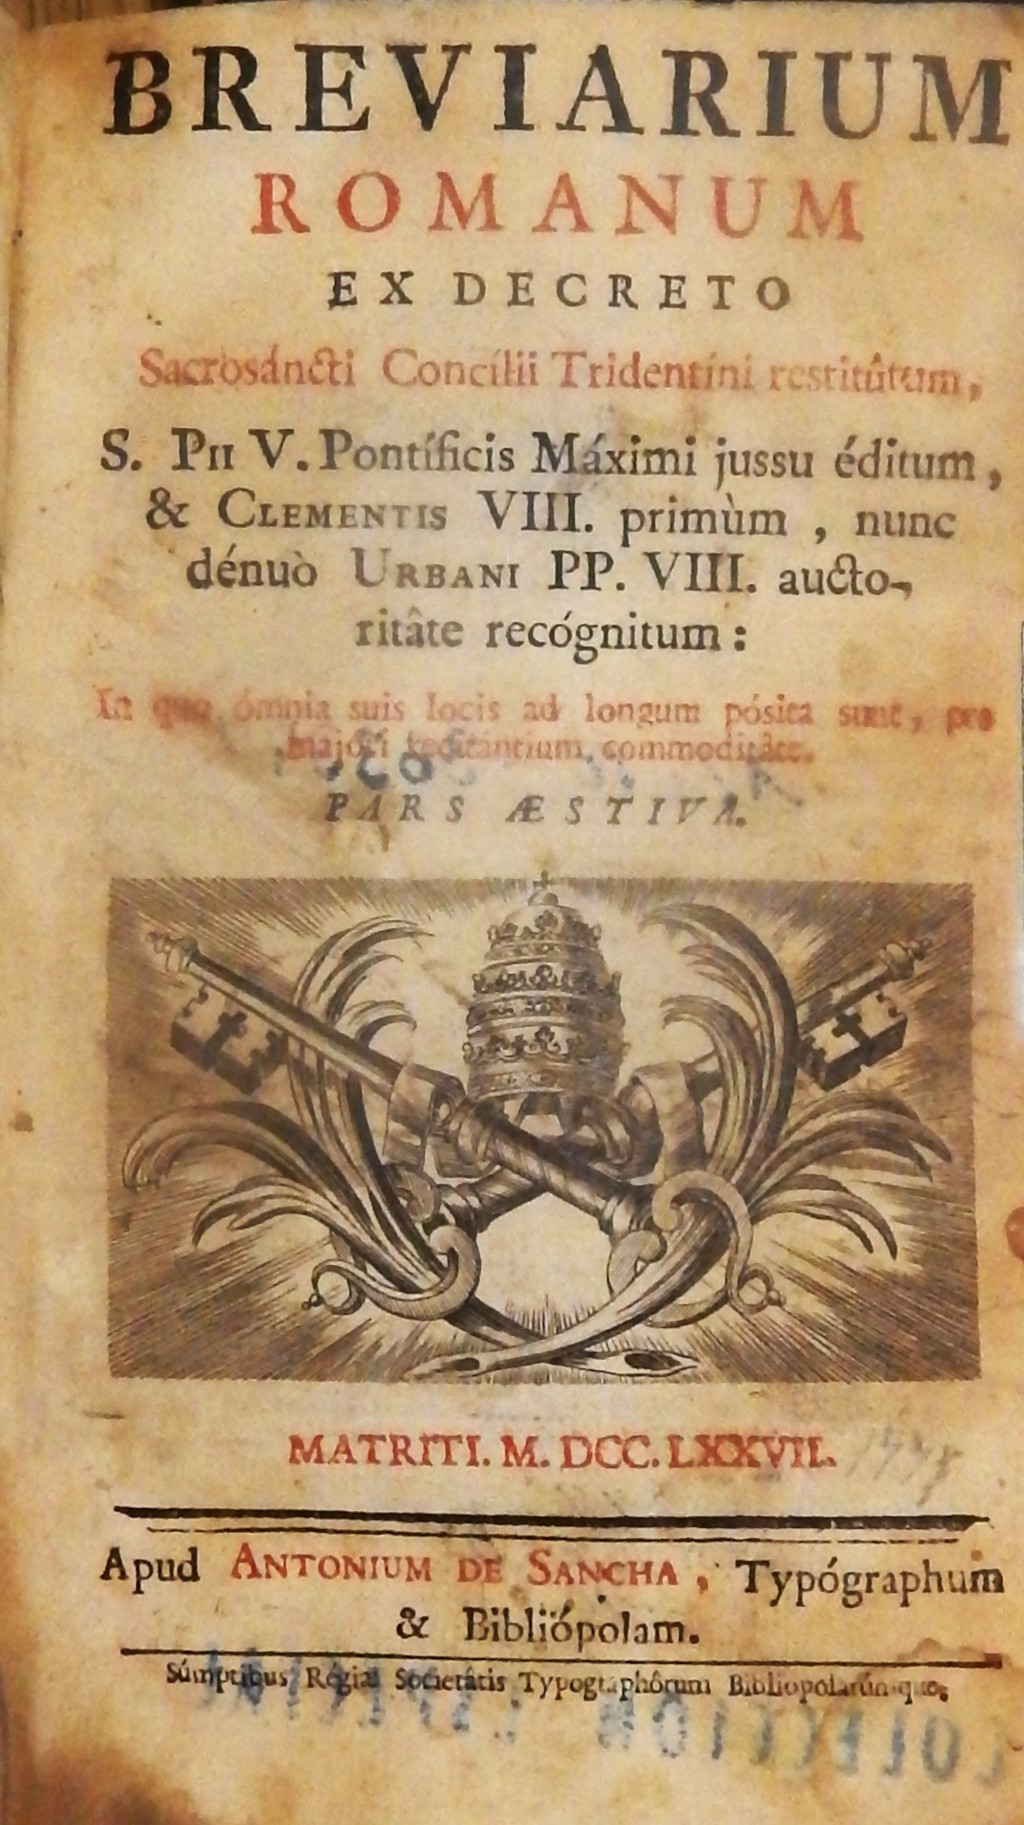 BREVIARIUM
ROMANUM
EX DECRETO
Sacrosáncti Concílii Tridentíni restitûtum,
S. PII V. Pontíficis Máximi jussu éditum,
& CLEMENTIS VIII. primùm , nunc
dénuò URBANI PP. VIII. aucto-
ritâte recógnitum :
In quo ómnia suis locis ad longum pósita sunt, pro
majóri recitántium commoditâte.
PARS ÆSTIVA.
MATRITI. M. DCC. LXXVII.
Apud ANTONIUM DE SANCHA , Typógraphum
& Bibliópolam.
Súmptibus Régiæ Societâtis Typographôrum Bibliopolarúmque.
COLECCION